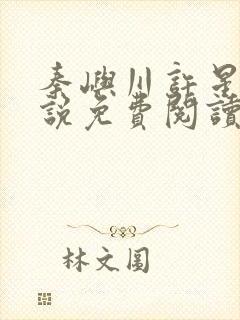 秦嶼川許是
說免費閱讀
林文圓